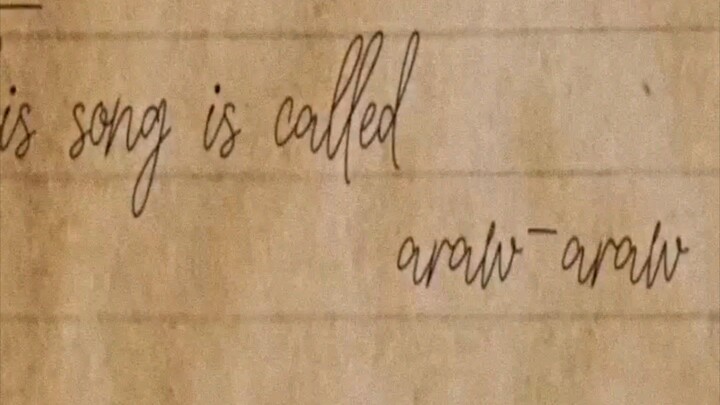 is song is called
araw-araw